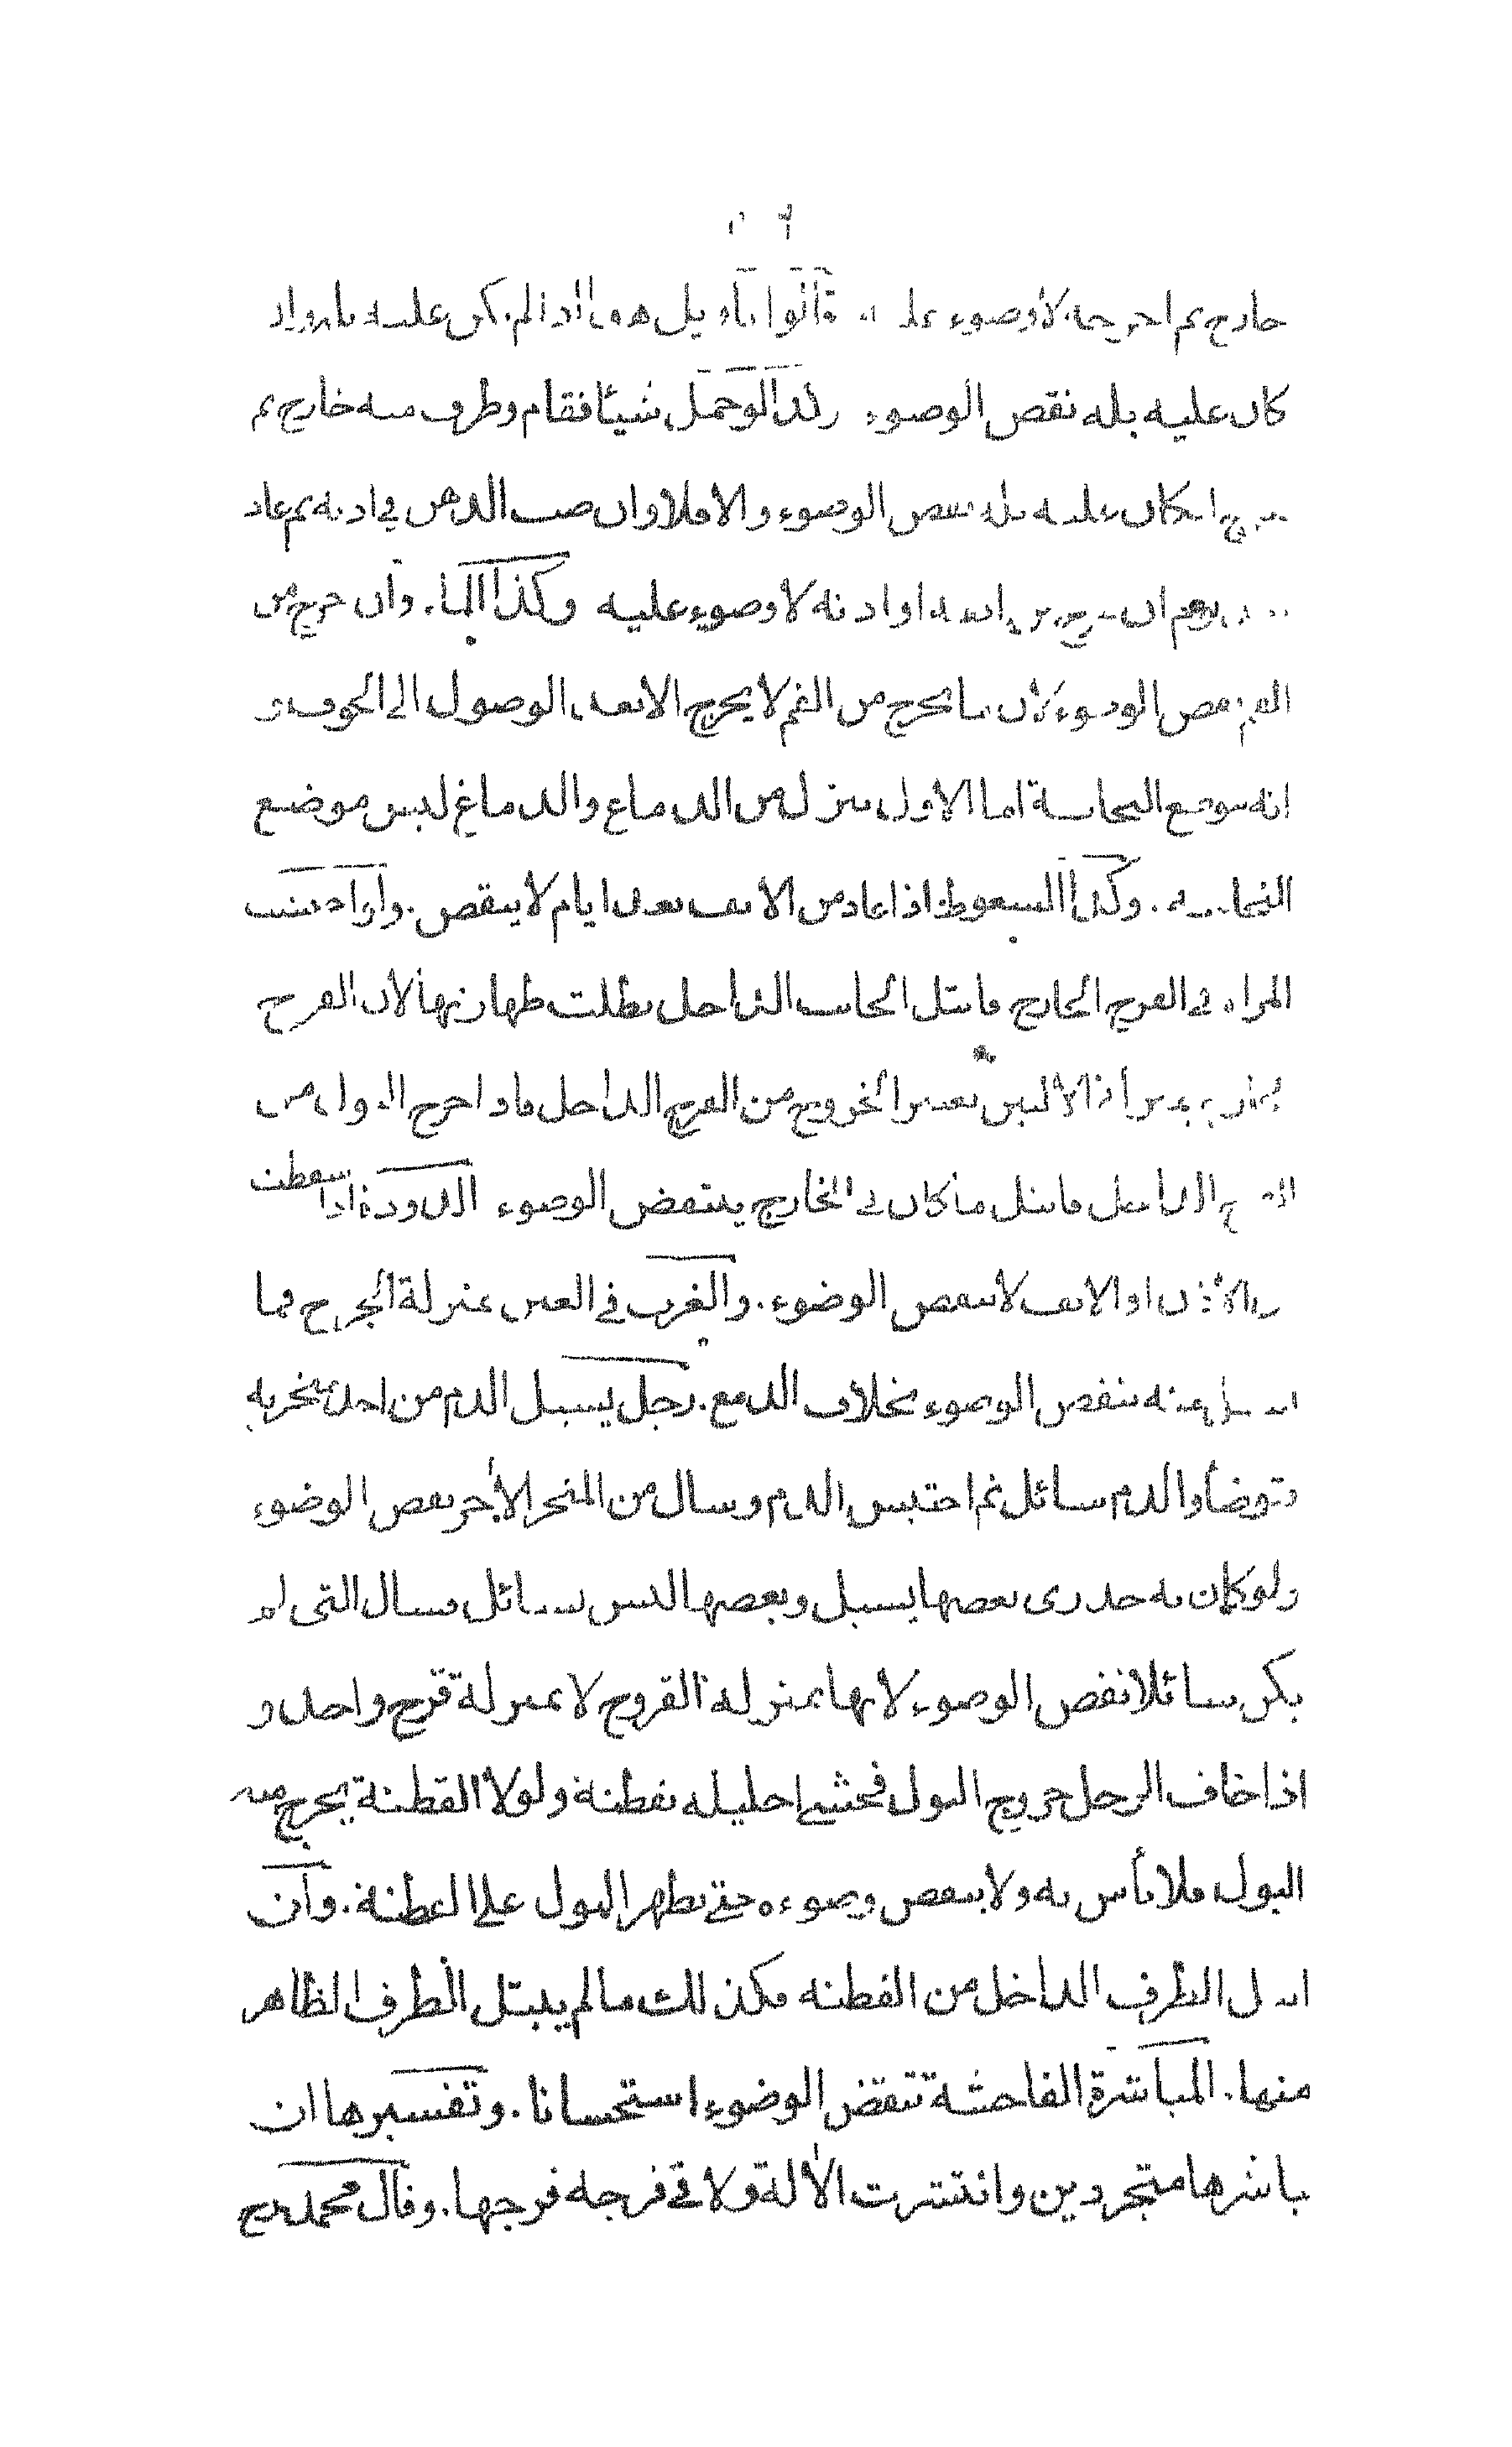 خارج ثم اخرجه لا وضوء عليه قالوا تاويل هذا اذا لم يكن عليه بلة ولو
كان عليه بله نقص الوضوء وكذا لو حمل شيئا فقام وطرف منه خارج ثم
خرج ان كان عليه بله ينقض الوضوء والا فلا وان صب الدهن في اذنه ثم عاد
بعد يوم ان خرج من انفه او اذنه لا وضوء عليه وكذا الماء. وان خرج من
الفم نقض الوضوء لان ما يخرج من الفم لا يخرج الا بعد الوصول الى الجوف و
انه موضع النجاسة اما الاول ينزل من الدماغ والدماغ ليس موضع
النجاسه. وكذا السعوط اذا عاد من الانف بعد ايام لا ينقض. واذا احتشت
المراه في الفرج الخارج فابتل الجانب الداخل بطلت طهارتها لان الفرج
الخارج بمنزلة الاليتين يعتبر الخروج من الفرج الداخل فاذا خرج البول من
الفرج الداخل فابتل ما كان في الخارج ينتقض الوضوء الدودة اذا سقطت
من الاذن او الانف لا ينقض الوضوء. والغرب في العين بمنزلة الجرح فما
يسيل منه ينقض الوضوء بخلاف الدمع. رجل يسيل الدم من احد منخريه
فتوضأ والدم سائل ثم احتبس الدم وسال من المنخر الآخر نقض الوضوء
ولو كان به جدري بعضها يسيل وبعضها ليس بسائل فسال التي لم
يكن سائلا نقض الوضوء لانها بمنزله القروح لا بمنزلة قرح واحد و
اذا خاف الرجل خروج البول فحشى احليله بقطنة ولولا القطنة يخرج منه
البول فلا بأس به ولا ينقض وضوءه حتى يظهر البول على القطنة. وان
ابتل الطرف الداخل من القطنه فكذلك ما لم يبتل الطرف الظاهر
منها. المباشرة الفاحشة تنقض الوضوء استحسانا. وتفسيرها ان
باشرها متجردين وانتشرت الآلة ولاقى فرجه فرجها. وقال محمد رح